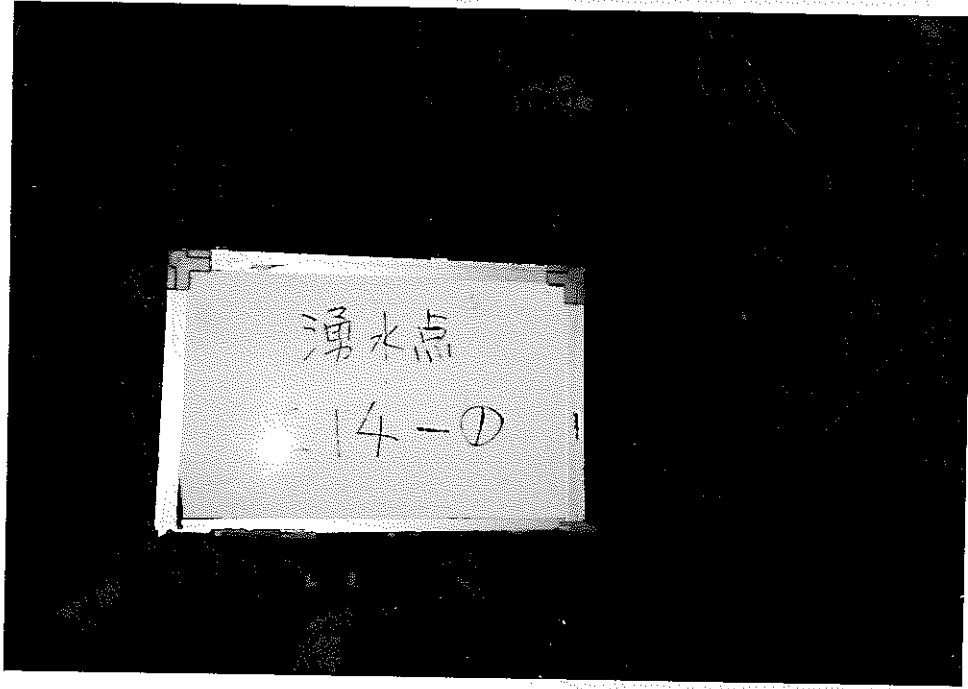 湧水点
14-①